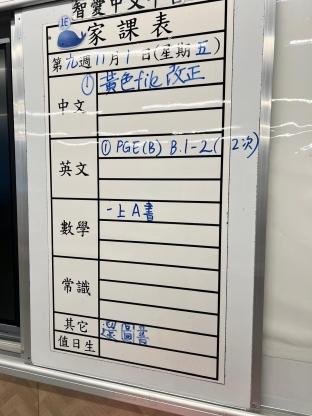 智靈中文
1E
家課表
第九週11月1日(星期五)
中文
① 黃色file 改正
英文
① PGE(B) B.1-2( 2次)
數學
一上A書
常識
其它
還圖書
值日生